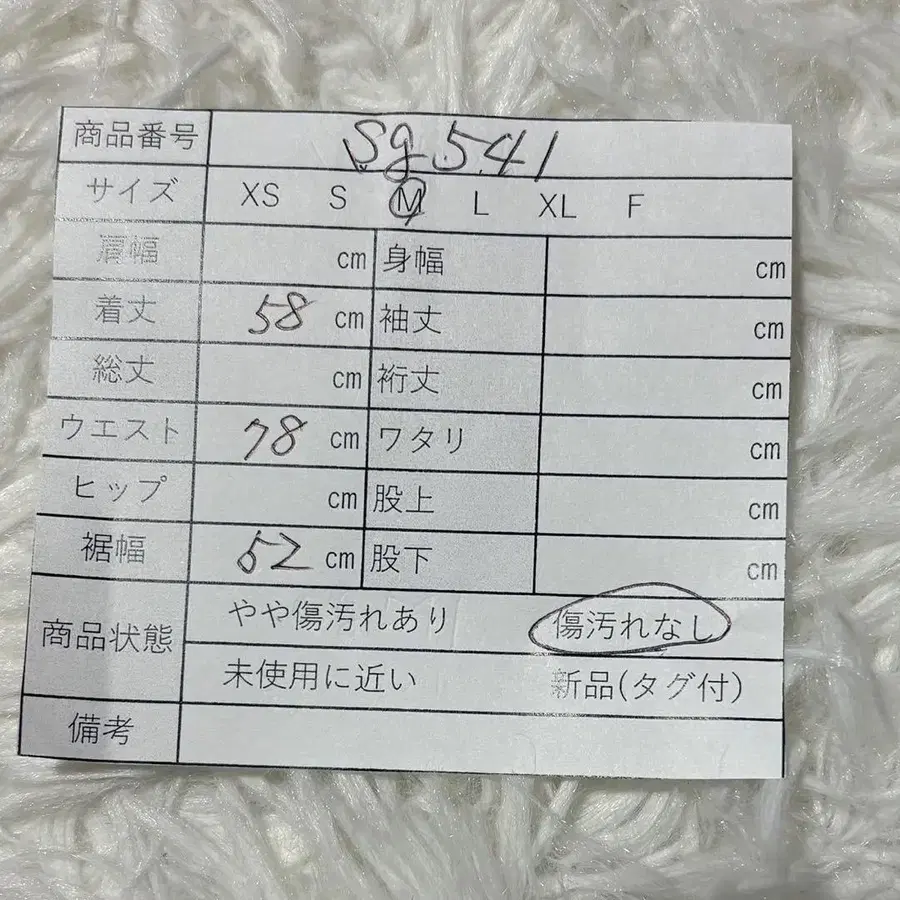 商品番号 Sg541
サイズ XS S M L XL F
肩幅 cm 身幅 cm
着丈 58 cm 袖丈 cm
総丈 cm 裄丈 cm
ウエスト 78 cm ワタリ cm
ヒップ cm 股上 cm
裾幅 52 cm 股下 cm
商品状態 やや傷汚れあり 傷汚れなし
未使用に近い 新品(タグ付)
備考